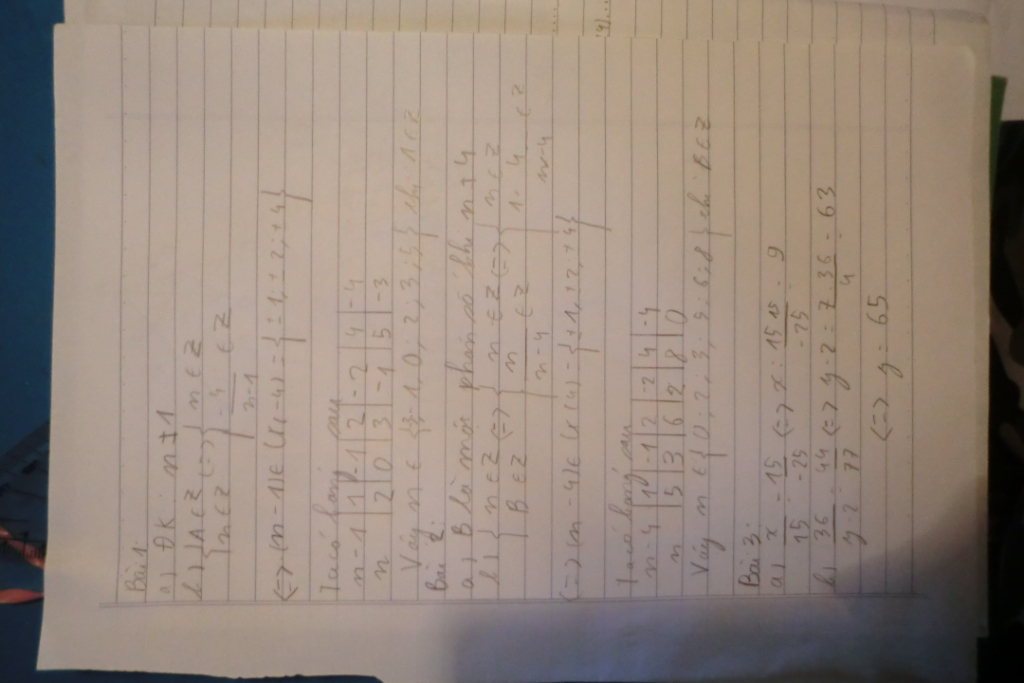 Bài 1:
a) ĐK: n ≠ 1
b) { A ∈ Z (=) { n ∈ Z
n ∈ Z -4/n-1 ∈ Z
(=) (n-1) ∈ Ư(-4) = { ±1, ±2; ±4 }
Ta có bảng sau
n-1 | 1 | -1 | 2 | -2 | 4 | -4
n | 2 | 0 | 3 | -1 | 5 | -3
Vậy n ∈ { -3; -1; 0; 2; 3; 5 } thì A ∈ Z
Bài 2:
a) B là một phân số khi n ≠ 4
b) { n ∈ Z (=) { n ∈ Z (=) { n ∈ Z
B ∈ Z n/n-4 ∈ Z 1 + 4/n-4 ∈ Z
(=) (n-4) ∈ Ư(4) = { ±1, ±2, ±4 }
Ta có bảng sau
n-4 | 1 | -1 | 2 | -2 | 4 | -4
n | 5 | 3 | 6 | 2 | 8 | 0
Vậy n ∈ { 0; 2; 3; 5; 6; 8 } thì B ∈ Z
Bài 3:
a) x/15 = -15/-25 (=) x = 15.15/-25 = 9
b) 36/y-2 = 44/77 (=) y-2 = 7.36/4 = 63
(=) y = 65